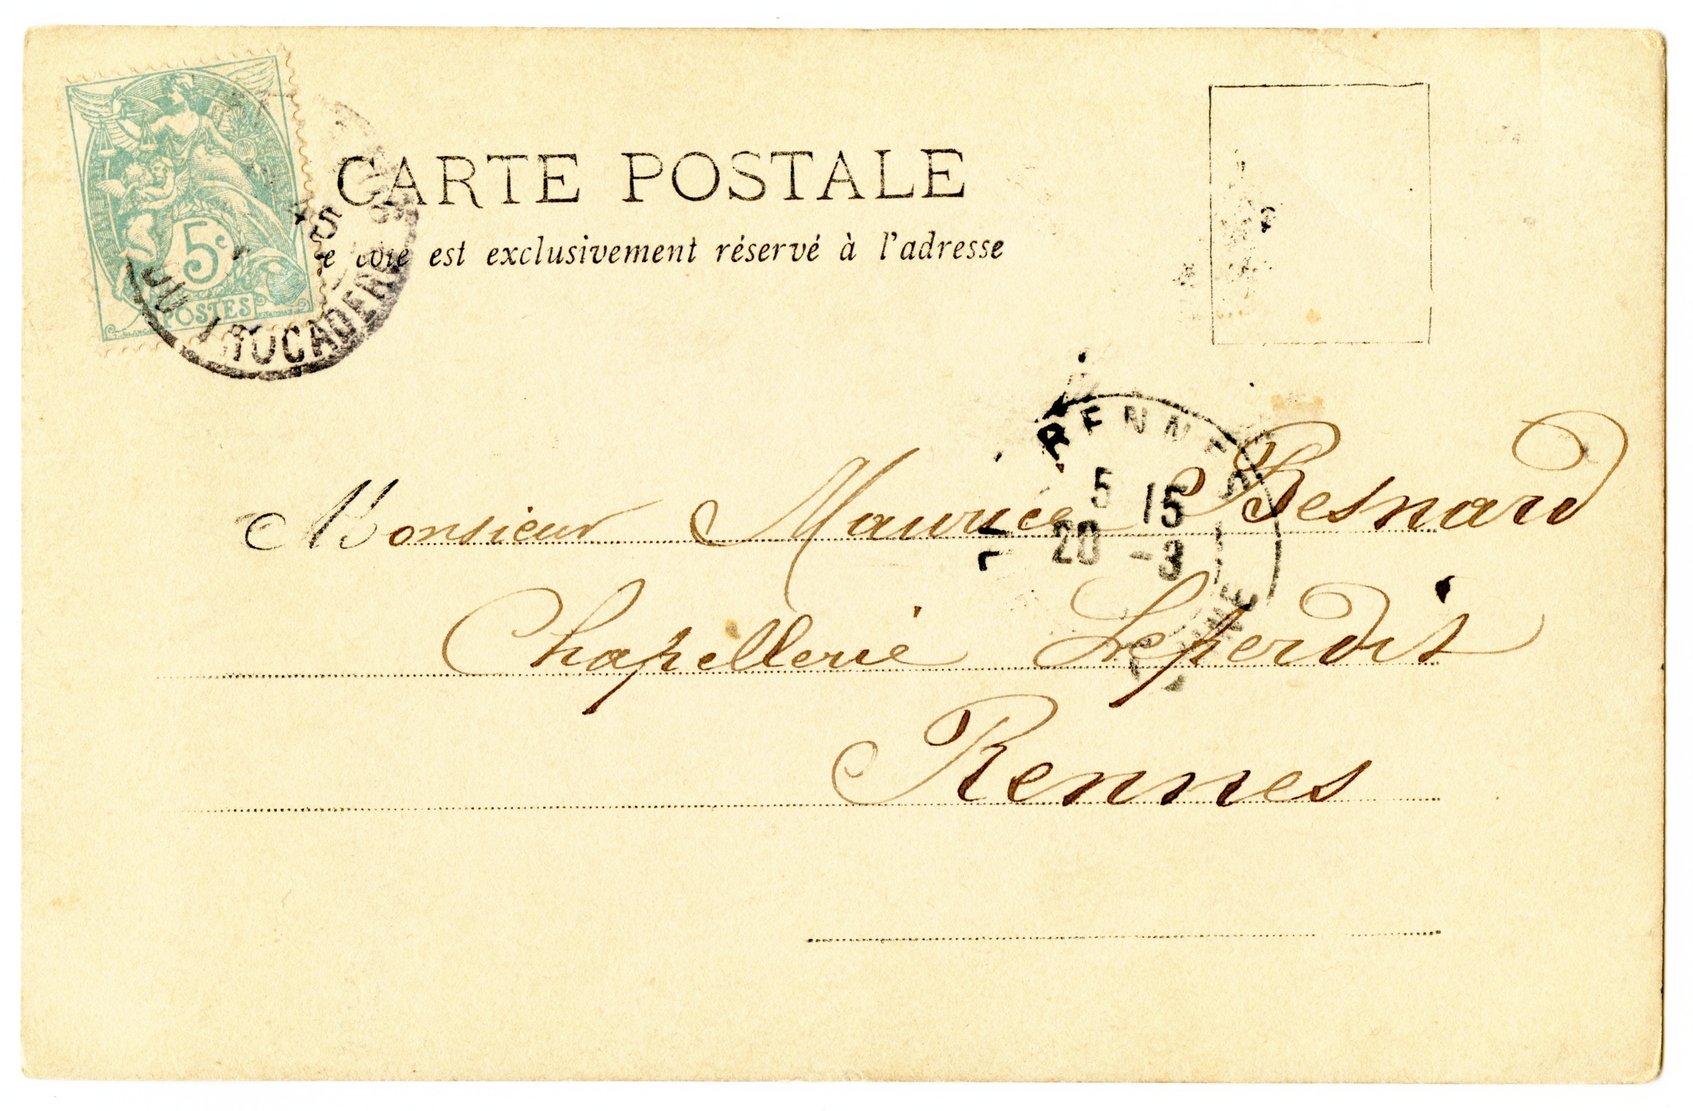 5c
POSTES
CARTE POSTALE
est exclusivement réservé à l'adresse
RENNES
5 15
20 -3
Monsieur Maurice Besnard
Chapellerie Leperdit
Rennes